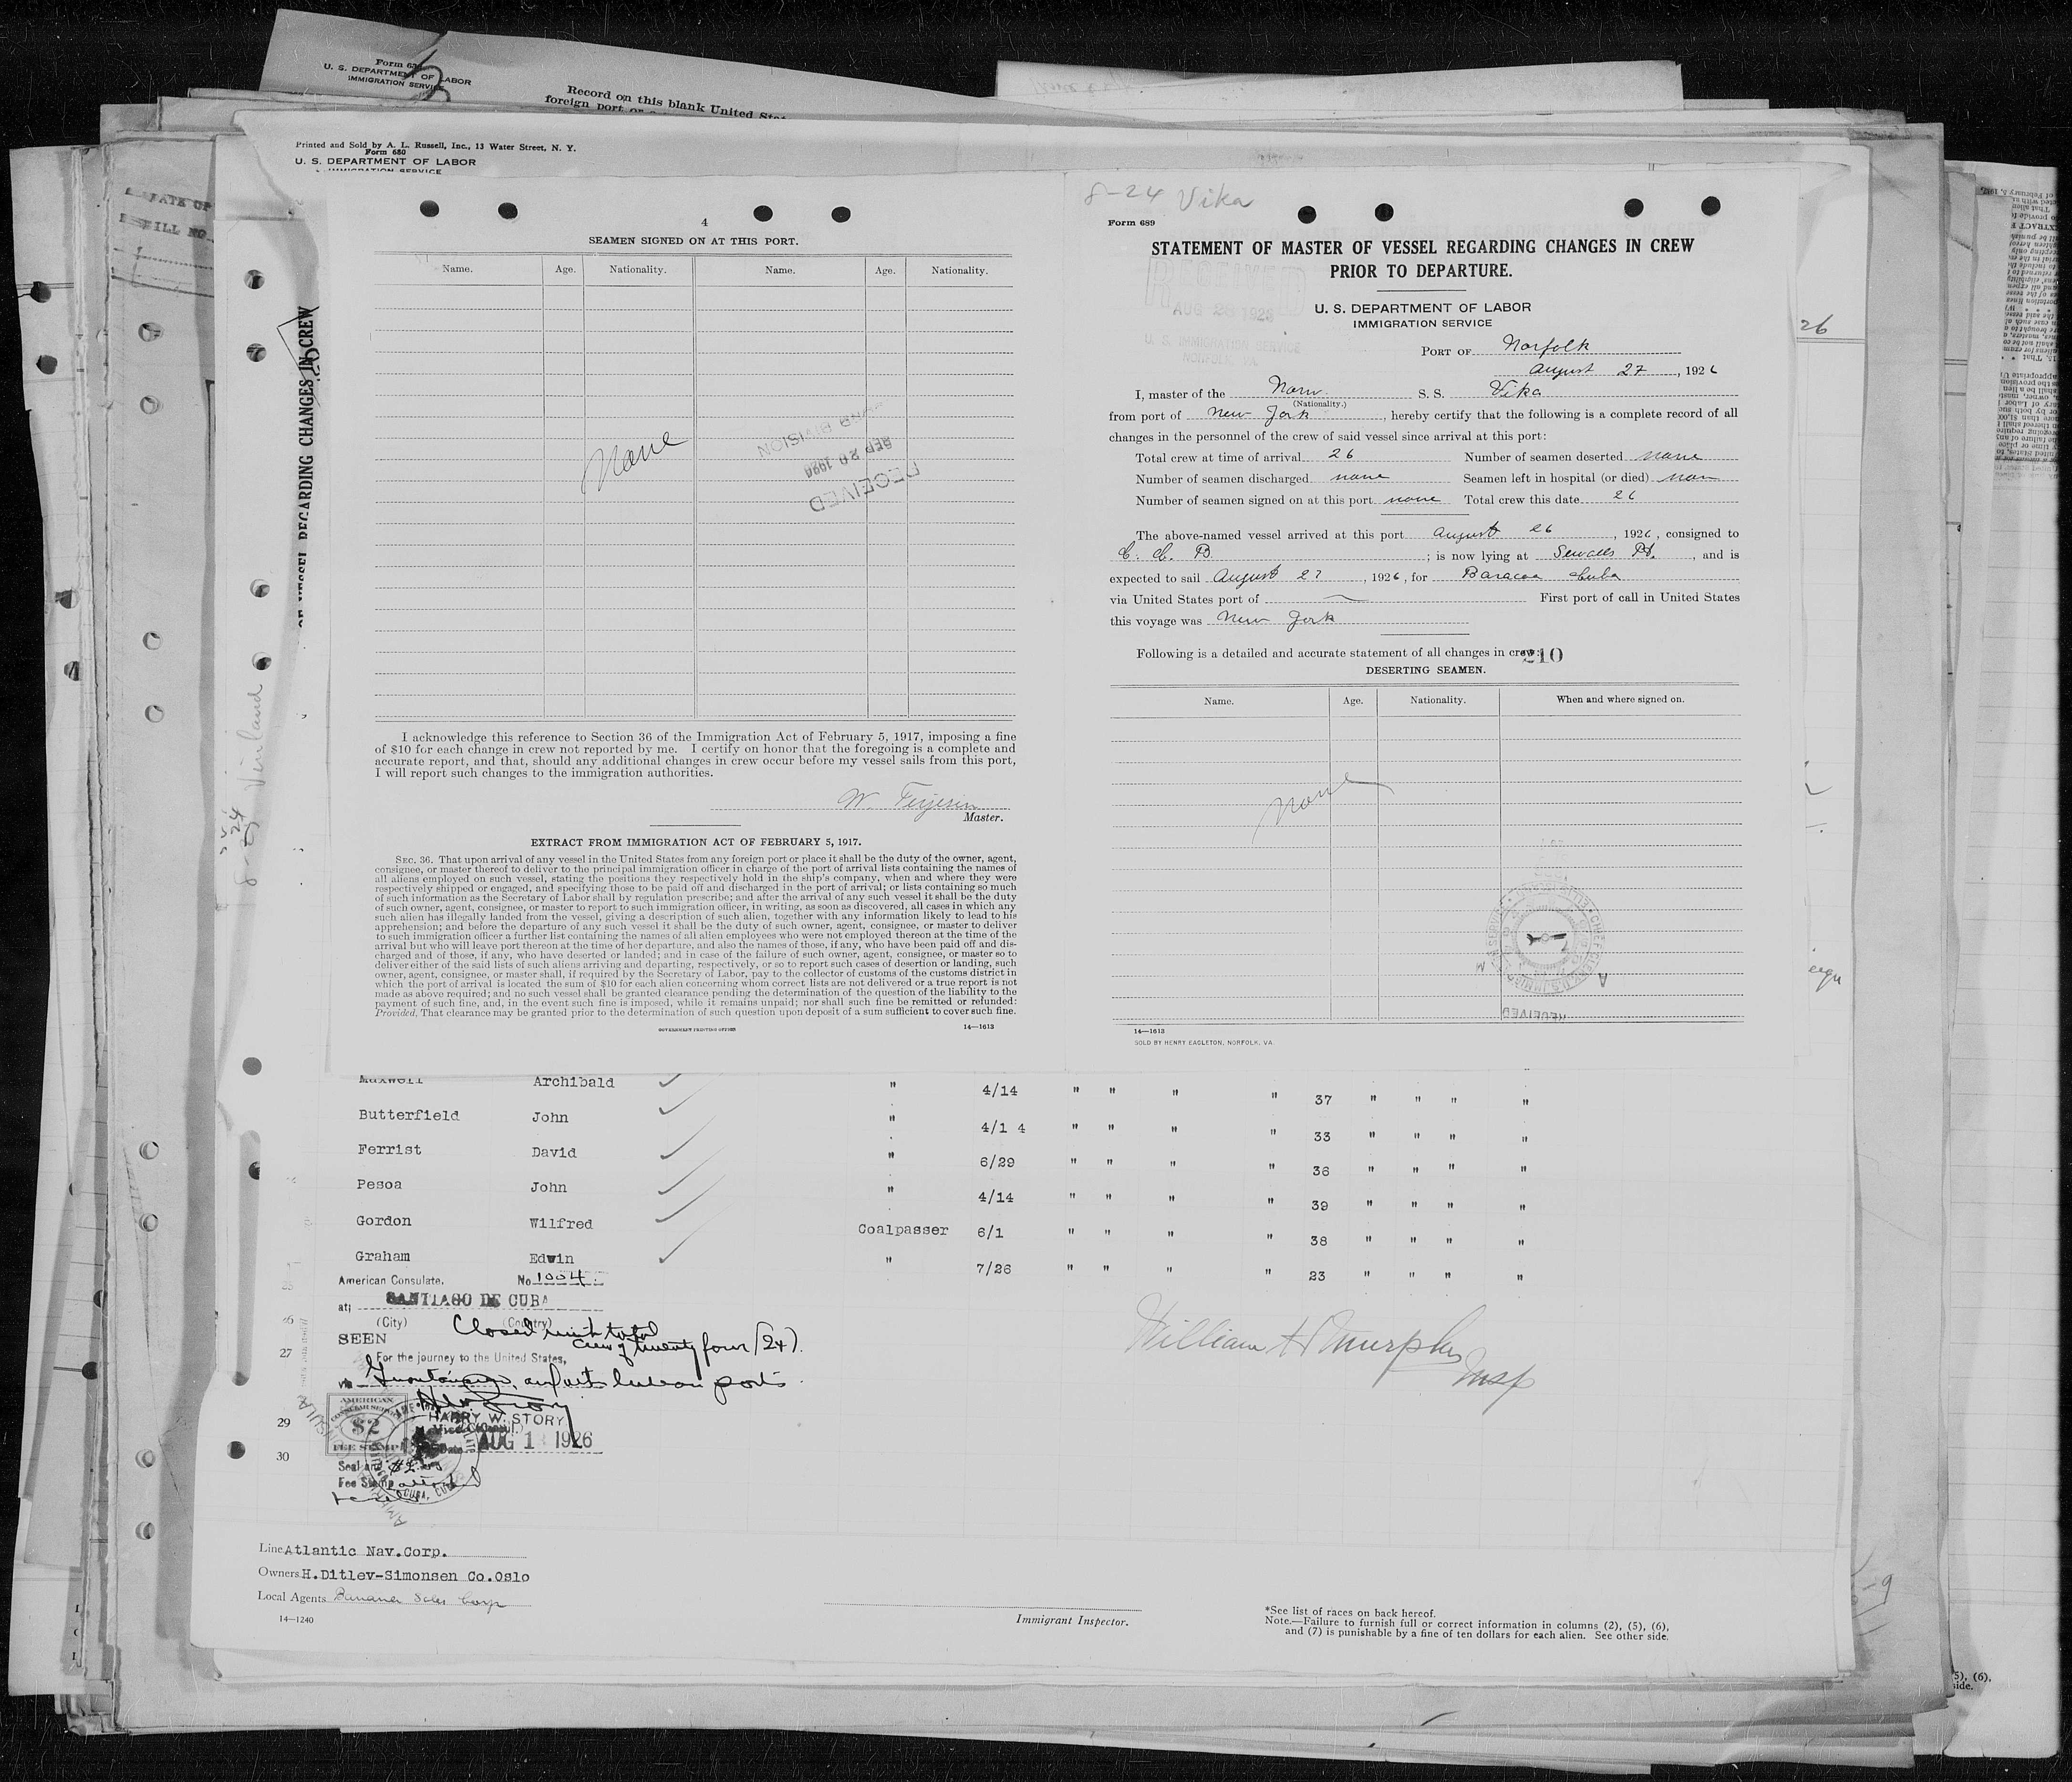 Form 680
U. S. DEPARTMENT OF LABOR
IMMIGRATION SERVICE
Record on this blank United
foreign port or
Printed and Sold by A. L. Russell, Inc., 13 Water Street, N. Y.
Form 680
U. S. DEPARTMENT OF LABOR
IMMIGRATION SERVICE
REGARDING CHANGES IN CREW
8-24 Vinland
4
SEAMEN SIGNED ON AT THIS PORT.
Name. Age. Nationality. Name. Age. Nationality.
None
RECEIVED
SEP 20 1926
DIVISION
I acknowledge this reference to Section 36 of the Immigration Act of February 5, 1917, imposing a fine
of $10 for each change in crew not reported by me. I certify on honor that the foregoing is a complete and
accurate report, and that, should any additional changes in crew occur before my vessel sails from this port,
I will report such changes to the immigration authorities.
W.
Master.
EXTRACT FROM IMMIGRATION ACT OF FEBRUARY 5, 1917.
SEC. 36. That upon arrival of any vessel in the United States from any foreign port or place it shall be the duty of the owner, agent,
consignee, or master thereof to deliver to the principal immigration officer in charge of the port of arrival lists containing the names of
all aliens employed on such vessel, stating the positions they respectively hold in the ship's company, when and where they were
respectively shipped or engaged, and specifying those to be paid off and discharged in the port of arrival; or lists containing so much
of such information as the Secretary of Labor shall by regulation prescribe; and after the arrival of any such vessel it shall be the duty
of such owner, agent, consignee, or master to report to such immigration officer, in writing, as soon as discovered, all cases in which any
such alien has illegally landed from the vessel, giving a description of such alien, together with any information likely to lead to his
apprehension; and before the departure of any such vessel it shall be the duty of such owner, agent, consignee, or master to deliver
to such immigration officer a further list containing the names of all alien employees who were not employed thereon at the time of the
arrival but who will leave port thereon at the time of her departure, and also the names of those, if any, who have been paid off and dis-
charged and of those, if any, who have deserted or landed; and in case of the failure of such owner, agent, consignee, or master so to
deliver either of the said lists of such aliens arriving and departing, respectively, or so to report such cases of desertion or landing, such
owner, agent, consignee, or master shall, if required by the Secretary of Labor, pay to the collector of customs of the customs district in
which the port of arrival is located the sum of $10 for each alien concerning whom correct lists are not delivered or a true report is not
made as above required; and no such vessel shall be granted clearance pending the determination of the question of the liability to the
payment of such fine, and, in the event such fine is imposed, while it remains unpaid; nor shall such fine be remitted or refunded:
Provided, That clearance may be granted prior to the determination of such question upon deposit of a sum sufficient to cover such fine.
GOVERNMENT PRINTING OFFICE 14—1613
8-24 Vika
Form 689
STATEMENT OF MASTER OF VESSEL REGARDING CHANGES IN CREW
PRIOR TO DEPARTURE.
RECEIVED
AUG 28 1926
U. S. IMMIGRATION SERVICE
NORFOLK, VA.
U. S. DEPARTMENT OF LABOR
IMMIGRATION SERVICE
PORT OF Norfolk
August 27, 1926
I, master of the Norw. S. S. Vika
(Nationality.)
from port of New York, hereby certify that the following is a complete record of all
changes in the personnel of the crew of said vessel since arrival at this port:
Total crew at time of arrival 26 Number of seamen deserted none
Number of seamen discharged none Seamen left in hospital (or died) non
Number of seamen signed on at this port none Total crew this date 26
The above-named vessel arrived at this port August 26, 1926, consigned to
C. C. B. ; is now lying at Sewells Pt., and is
expected to sail August 27, 1926, for Baracoa Cuba
via United States port of — First port of call in United States
this voyage was New York
Following is a detailed and accurate statement of all changes in crew:
210
DESERTING SEAMEN.
Name. Age. Nationality. When and where signed on.
None
RECEIVED
14—1613
SOLD BY HENRY EAGLETON, NORFOLK, VA.
Maxwell Archibald " 4/14 " " " " 37 " " " "
Butterfield John " 4/1 4 " " " " 33 " " " "
Ferrist David " 6/29 " " " " 36 " " " "
Pesoa John " 4/14 " " " " 39 " " " "
Gordon Wilfred Coalpasser 6/1 " " " " 38 " " " "
Graham Edwin " 7/26 " " " " 23 " " " "
American Consulate. No 1004
at; SANTIAGO DE CUBA
(City) (Country)
SEEN Closed with total
crew of twenty four (24).
27
For the journey to the United States,
via Guantanamo, and cuban ports
HARRY W. STORY
Vice Consul
Date AUG 1 1926
AMERICAN
CONSULAR SERVICE
$2
FEE STAMP
29
30
Seal and $2
Fee Stamp attached
William H Murphy
Insp
Line Atlantic Nav.Corp.
Owners H.Ditlev-Simonsen Co.Oslo
Local Agents Banana Sales Corp
14—1240
Immigrant Inspector.
*See list of races on back hereof.
Note.—Failure to furnish full or correct information in columns (2), (5), (6),
and (7) is punishable by a fine of ten dollars for each alien. See other side.
26
5), (6),
side.